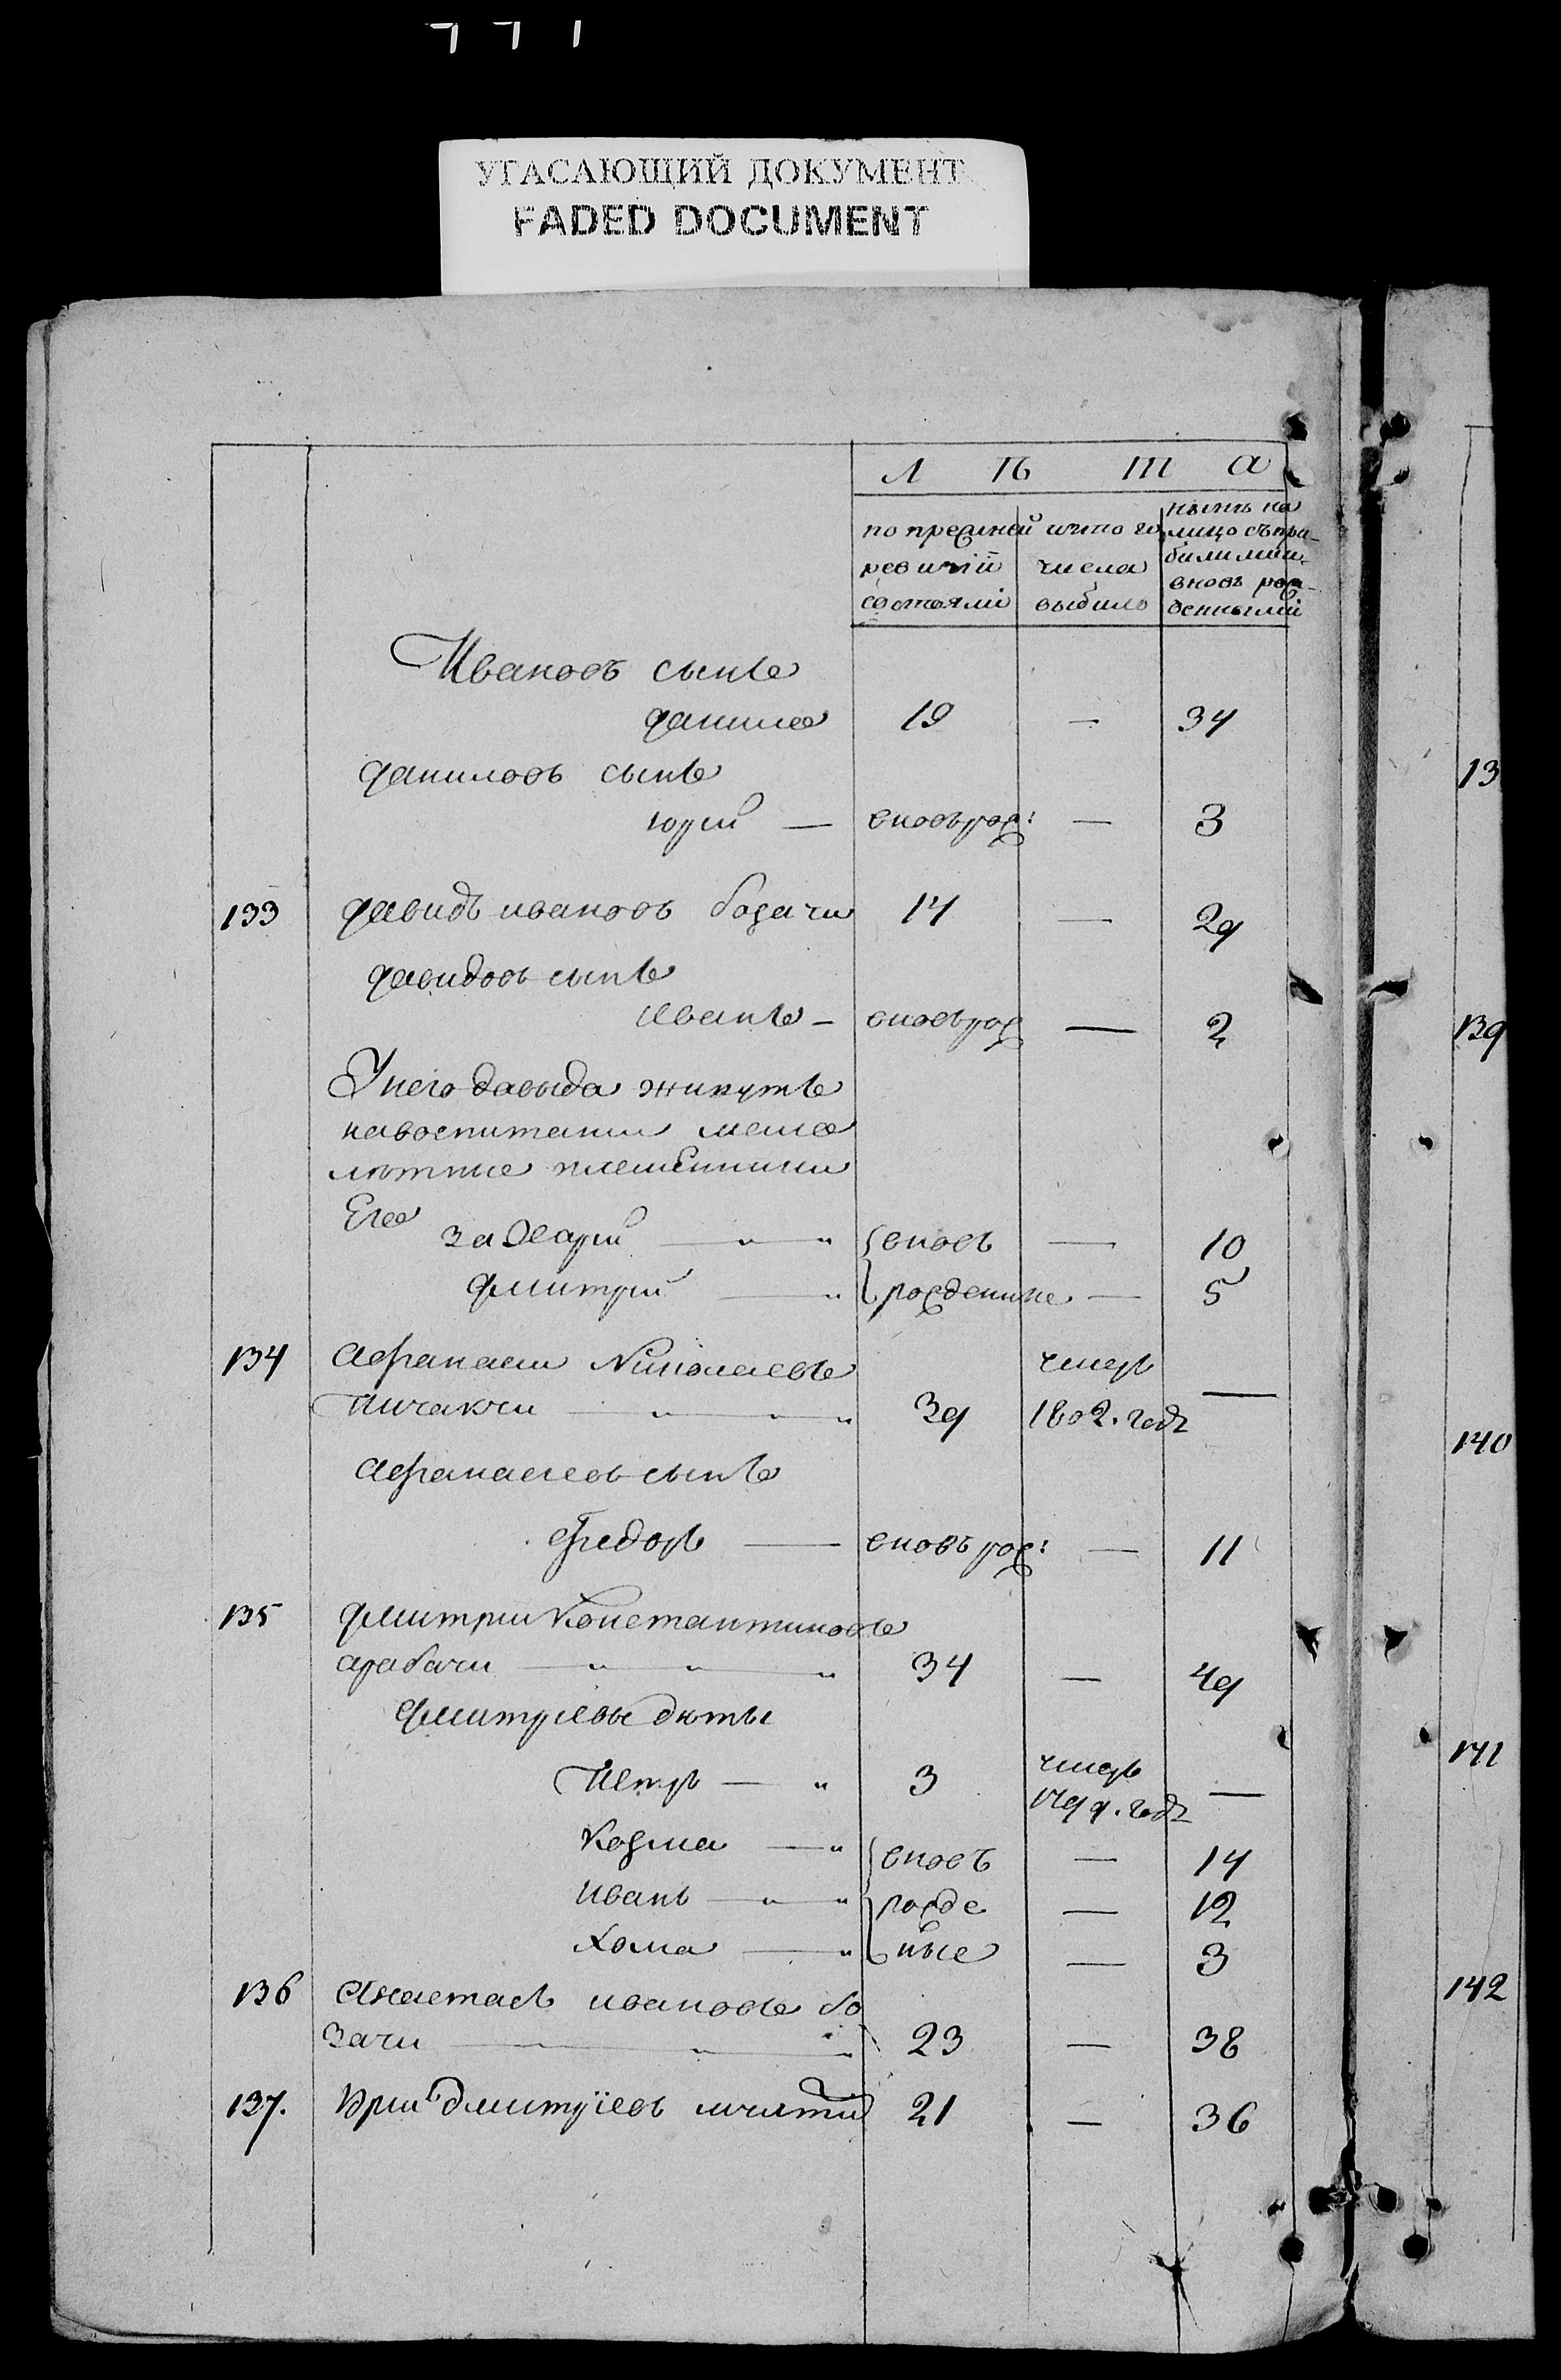 УГАСАЮЩИЙ ДОКУМЕНТ
FADED DOCUMENT
Л Ѣ Т А
по прежней ревизіи состояли
исъ того числа выбыло
нынѣ на лицо съ прибылыми вновь рожденными
Ивановъ сынъ
данило 19 — 34
даниловъ сынъ
юрий — вновь рож: — 3
133 давидъ ивановъ бозачи 14 — 29
давидовъ сынъ
иванъ — вновь рож — 2
У него давыда живутъ
на воспитании мало
лѣтные племянники
Его
Захарий — " — " вновь — 10
дмитрий — " рожденные — 5
134 афанасий Николаевъ умеръ
пичакчи — " — " — " 39 1802. годъ —
афанасиевъ сынъ
федоръ — вновь рож: — 11
135 дмитрий Константиновъ
арабачи — " — " — " 34 — 49
дмитриевы дѣти
Петръ — " 3 умеръ 1799. годъ —
Козма — " вновь — 14
иванъ — " — " рожде — 12
Хома — " ные — 3
136 Анастасъ ивановъ бо
зачи — " — " 23 — 38
137. Юрий дмитріевъ 21 — 36
13
139
140
141
142